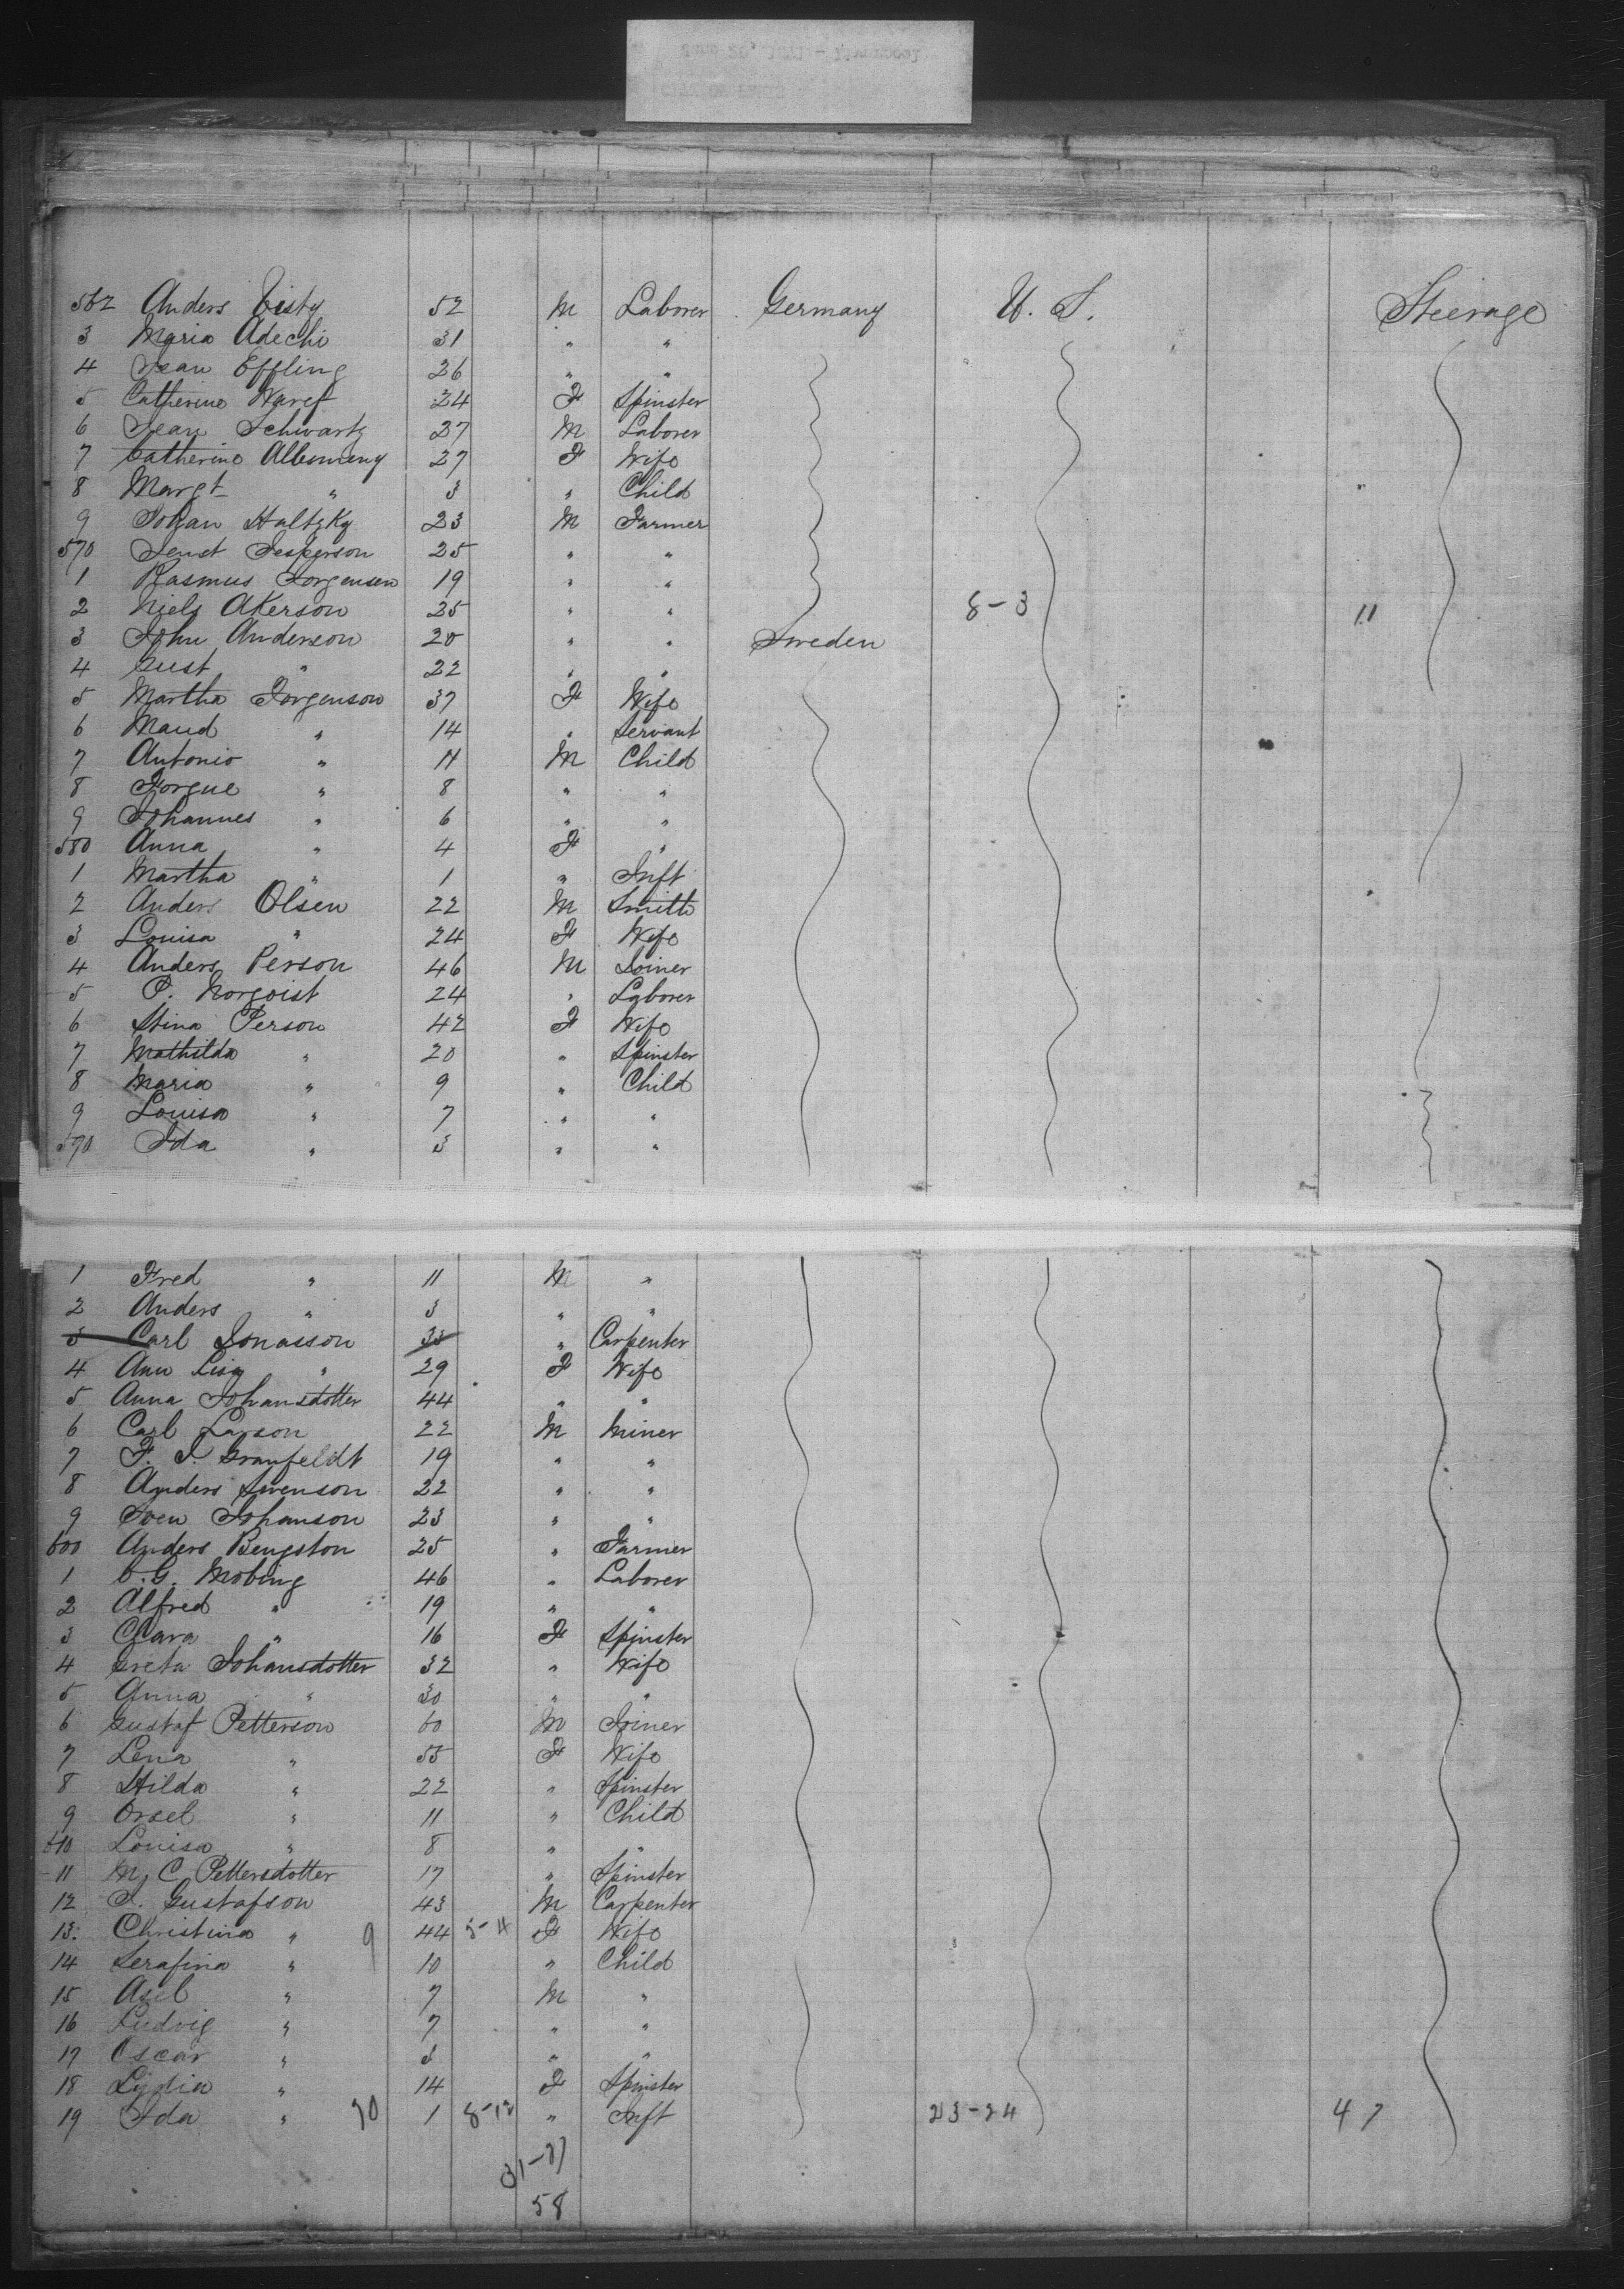 562 Anders Tisty 52 M Laborer Germany U.S. Steerage
3 Maria Adechi 31 " "
4 Jean Effling 26 " "
5 Catherine 24 F Spinster
6 Jean Schwartz 27 M Laborer
7 Catherine 27 F Wife
8 Margt " 3 " Child
9 Johan Haltzky 23 M Farmer
570 Jesperson 25 " "
1 Rasmus Jorgensen 19 " "
2 Niels Akerson 25 " " 8-3 11
3 John Anderson 20 " " Sweden
4 Gust " 22 " "
5 Martha Jorgenson 37 F Wife
6 Maud " 14 " Servant
7 Antonio " 11 M Child
8 Jorgue " 8 " "
9 Johannes " 6 " "
580 Anna " 4 F "
1 Martha " 1 " Inft
2 Anders Olsen 22 M Smith
3 Louisa " 24 F Wife
4 Anders Person 46 M Joiner
5 P. Norqoist 24 " Laborer
6 Stina Person 42 F Wife
7 Mathilda " 20 " Spinster
8 Maria " 9 " Child
9 Louisa " 7 " "
590 Ida " 3 " "
1 Fred " 11 M "
2 Anders " 3 " "
3 Carl Jonasson 33 " Carpenter
4 Ann Lisa " 29 F Wife
5 Anna Johansdotter 44 " "
6 Carl Larson 22 M Miner
7 F. J. Granfeldt 19 " "
8 Anders Swenson 22 " "
9 Sven Johanson 23 " "
600 Anders Bengston 25 " Farmer
1 C. G. Mobing 46 " Laborer
2 Alfred " 19 " "
3 Clara " 16 F Spinster
4 Greta Johansdotter 32 " Wife
5 Anna " 30 " "
6 Gustaf Petterson 60 M Joiner
7 Lena " 55 F Wife
8 Hilda " 22 " Spinster
9 Orsel " 11 " Child
610 Louisa " 8 " "
11 M. C. Pettersdotter 17 " Spinster
12 J. Gustafson 43 M Carpenter
13 Christina " 9 44 5-4 F Wife
14 Serafina " 10 " Child
15 Axel " 7 M "
16 Ludvig " 7 " "
17 Oscar " 3 " "
18 Lydia " 14 F Spinster
19 Ida " 10 1 8-12 " Inft 23-24 47
31-27
58